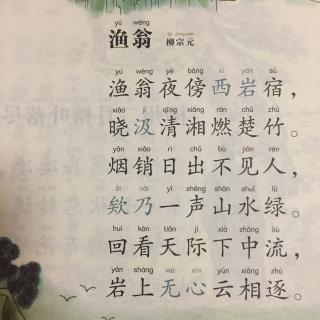 yú wēng
渔翁 柳宗元
yú wēng yè bàng xī yán sù
渔翁夜傍西岩宿，
xiǎo jí qīng xiāng rán chǔ zhú
晓汲清湘燃楚竹。
yān xiāo rì chū bú jiàn rén
烟销日出不见人，
ǎi nǎi yī shēng shān shuǐ lǜ
欸乃一声山水绿。
huí kàn tiān jì xià zhōng liú
回看天际下中流，
yán shàng wú xīn yún xiāng zhú
岩上无心云相逐。